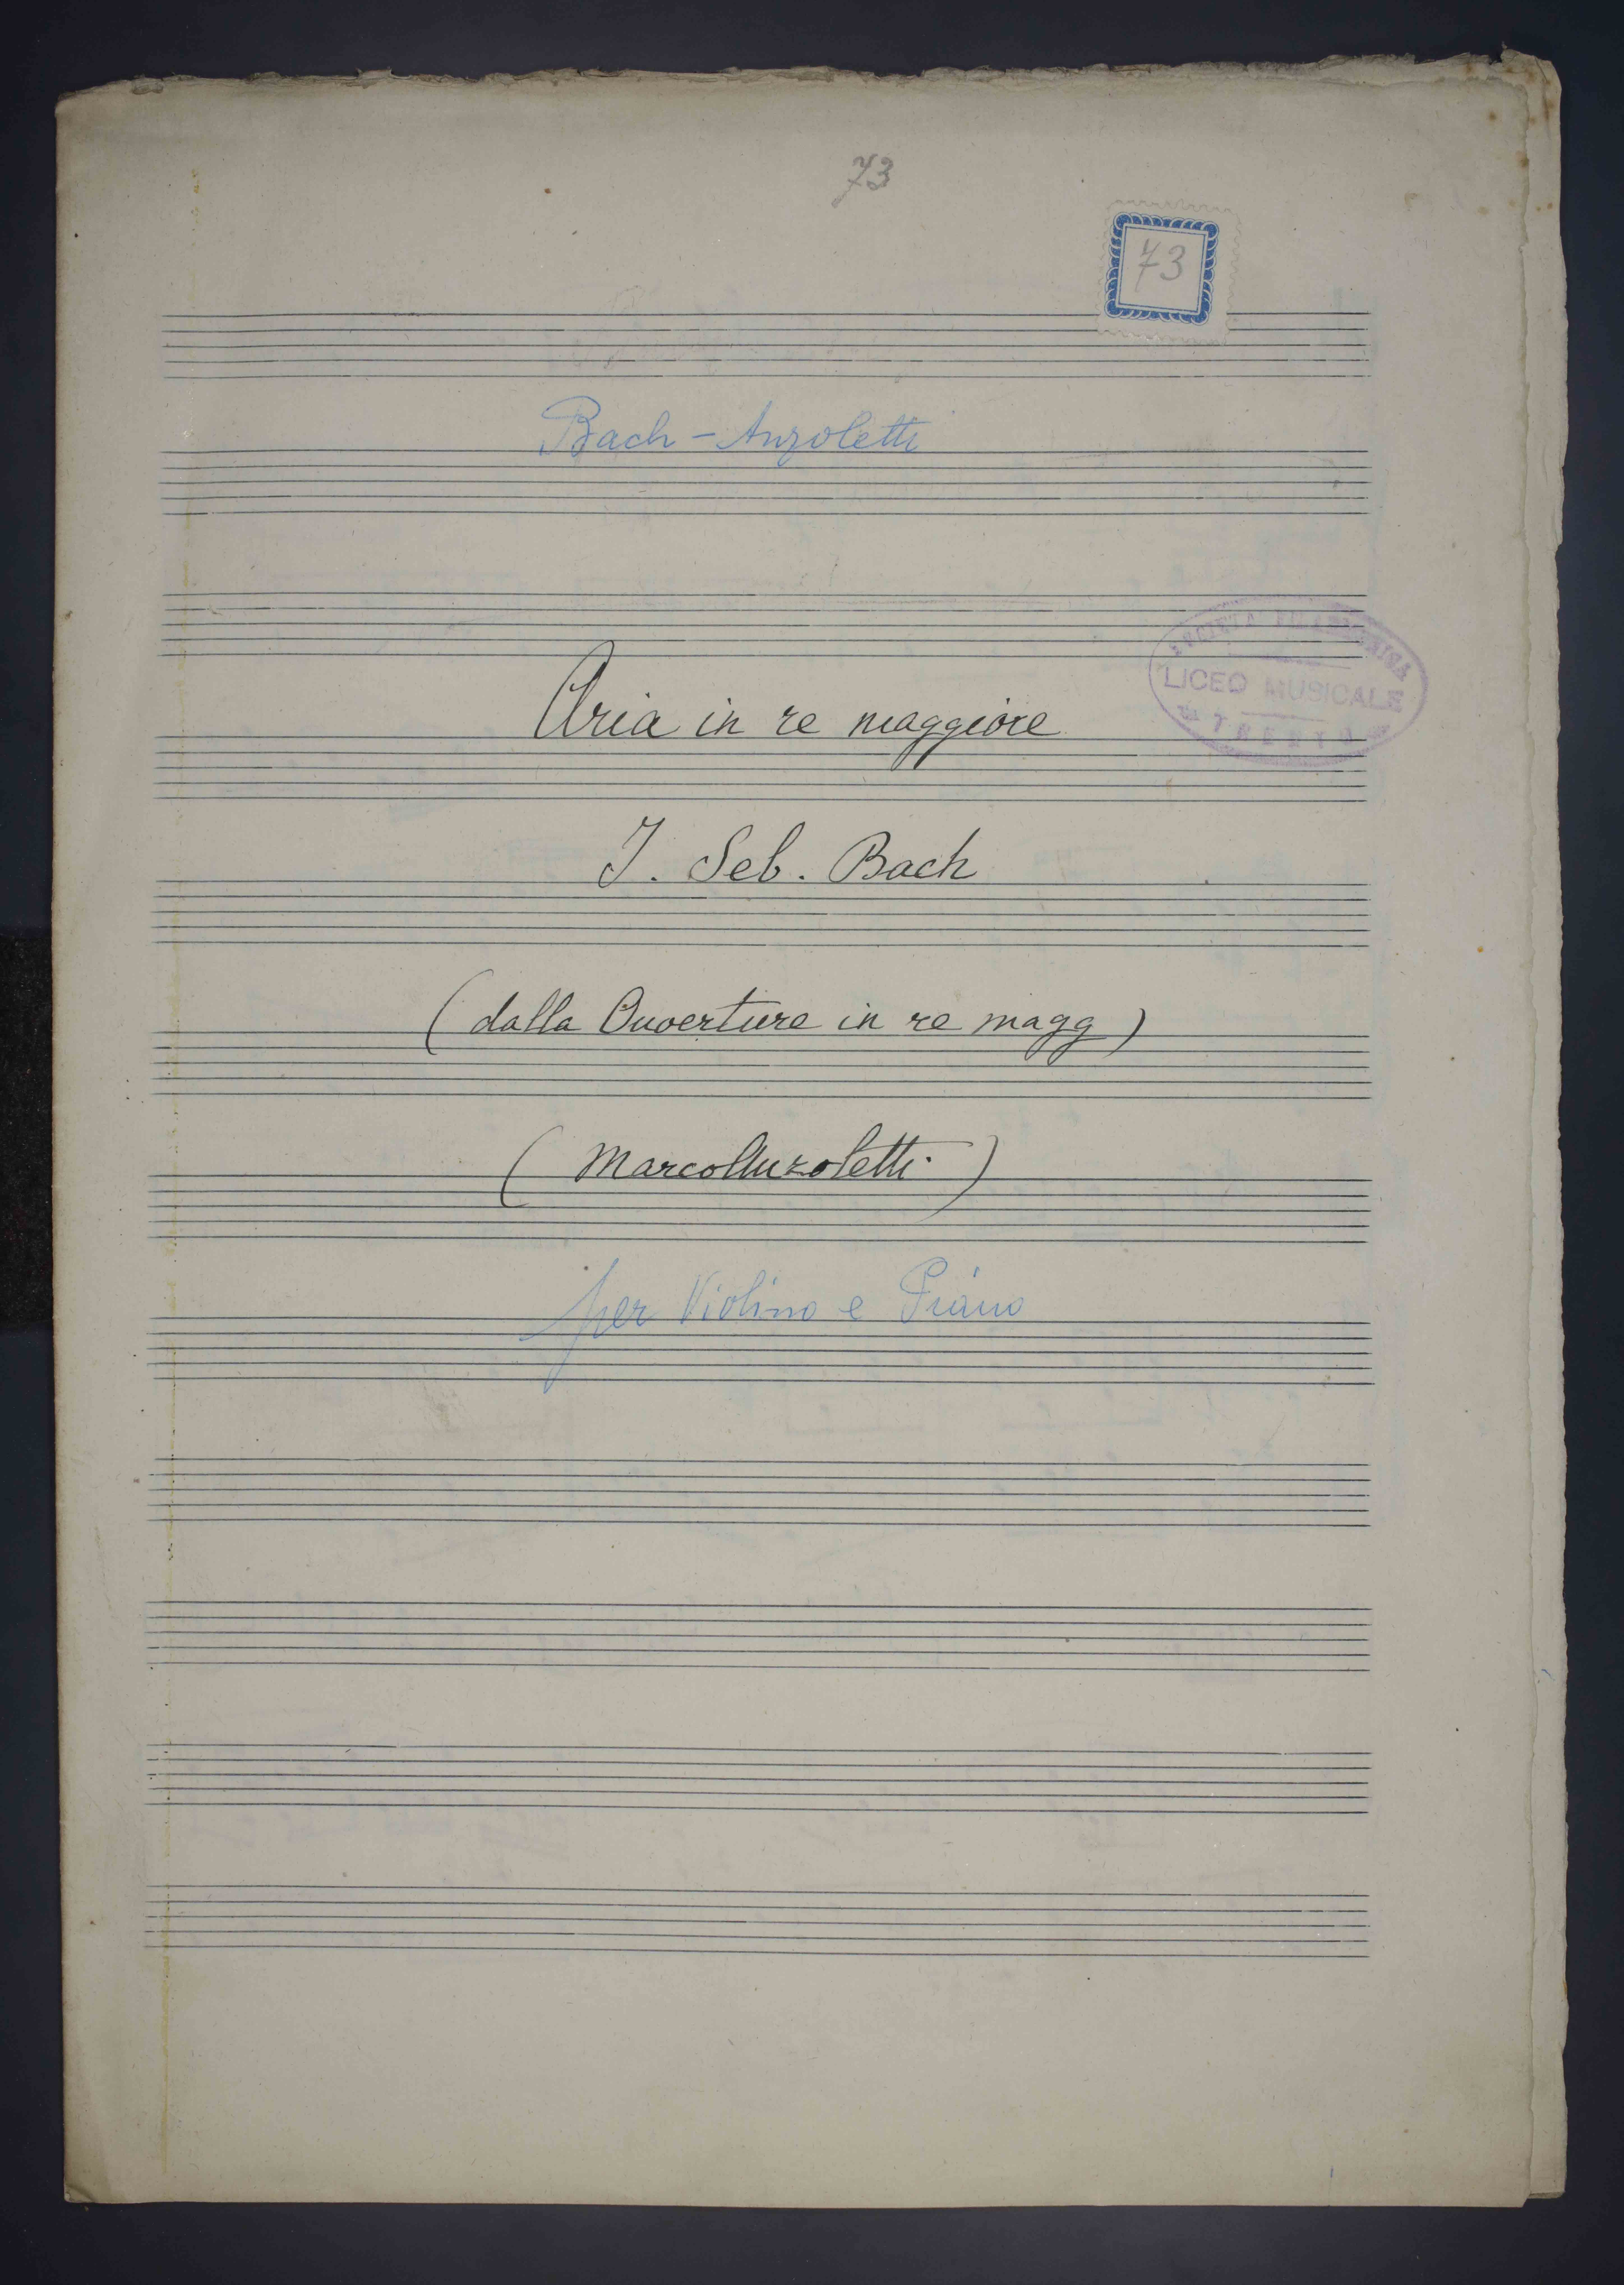 73
73
Bach - Anzoletti
SOCIETÀ FILARMONICA
LICEO MUSICALE
TRENTO
Aria in re maggiore
J. Seb. Bach
(dalla Ouverture in re magg)
(Marco Anzoletti)
per Violino e Piano